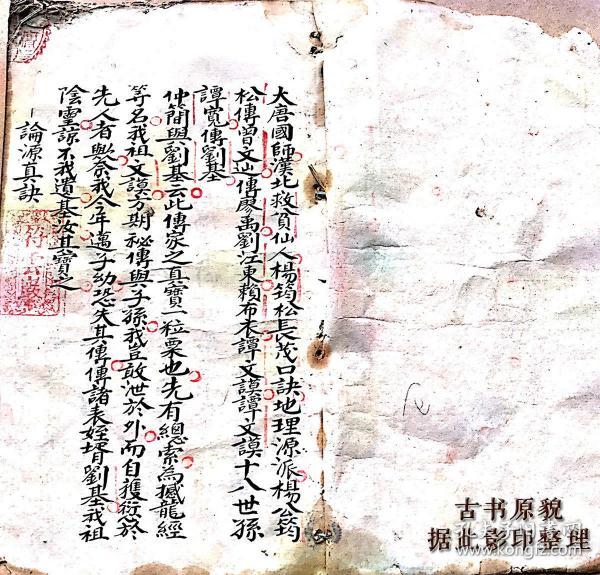 大唐國師漢北救貧仙人楊筠松長茂口訣地理源派楊公筠
松傳曾文辿傳廖禹劉江東賴布衣譚文謨譚文謨十八世孫
譚寬傳劉基
仲簡與劉基云此傳家之真寶一粒粟也先有總索為撼龍經
等名我祖文謨方期秘傳與子孫我豈敢泄於外而自獲衍於
先人者歟奈我今年邁子幼恐失其傳傳諸表姪壻劉基我祖
陰靈諒不我遺基汝其寶之
一論源真訣
古书原貌
据此影印整理